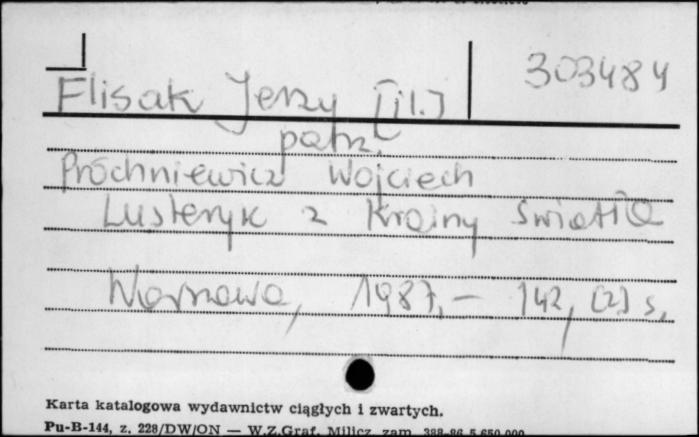 Flisak Jerzy [il.]
303484
patrz
Próchniewicz Wojciech
Lusteryk z Krainy Światła
Warszawa, 1987, — 142, [2] s,
Karta katalogowa wydawnictw ciągłych i zwartych.
Pu-B-144, z. 228/DW/ON — W.Z.Graf. Milicz zam. 388-86 5.650.000